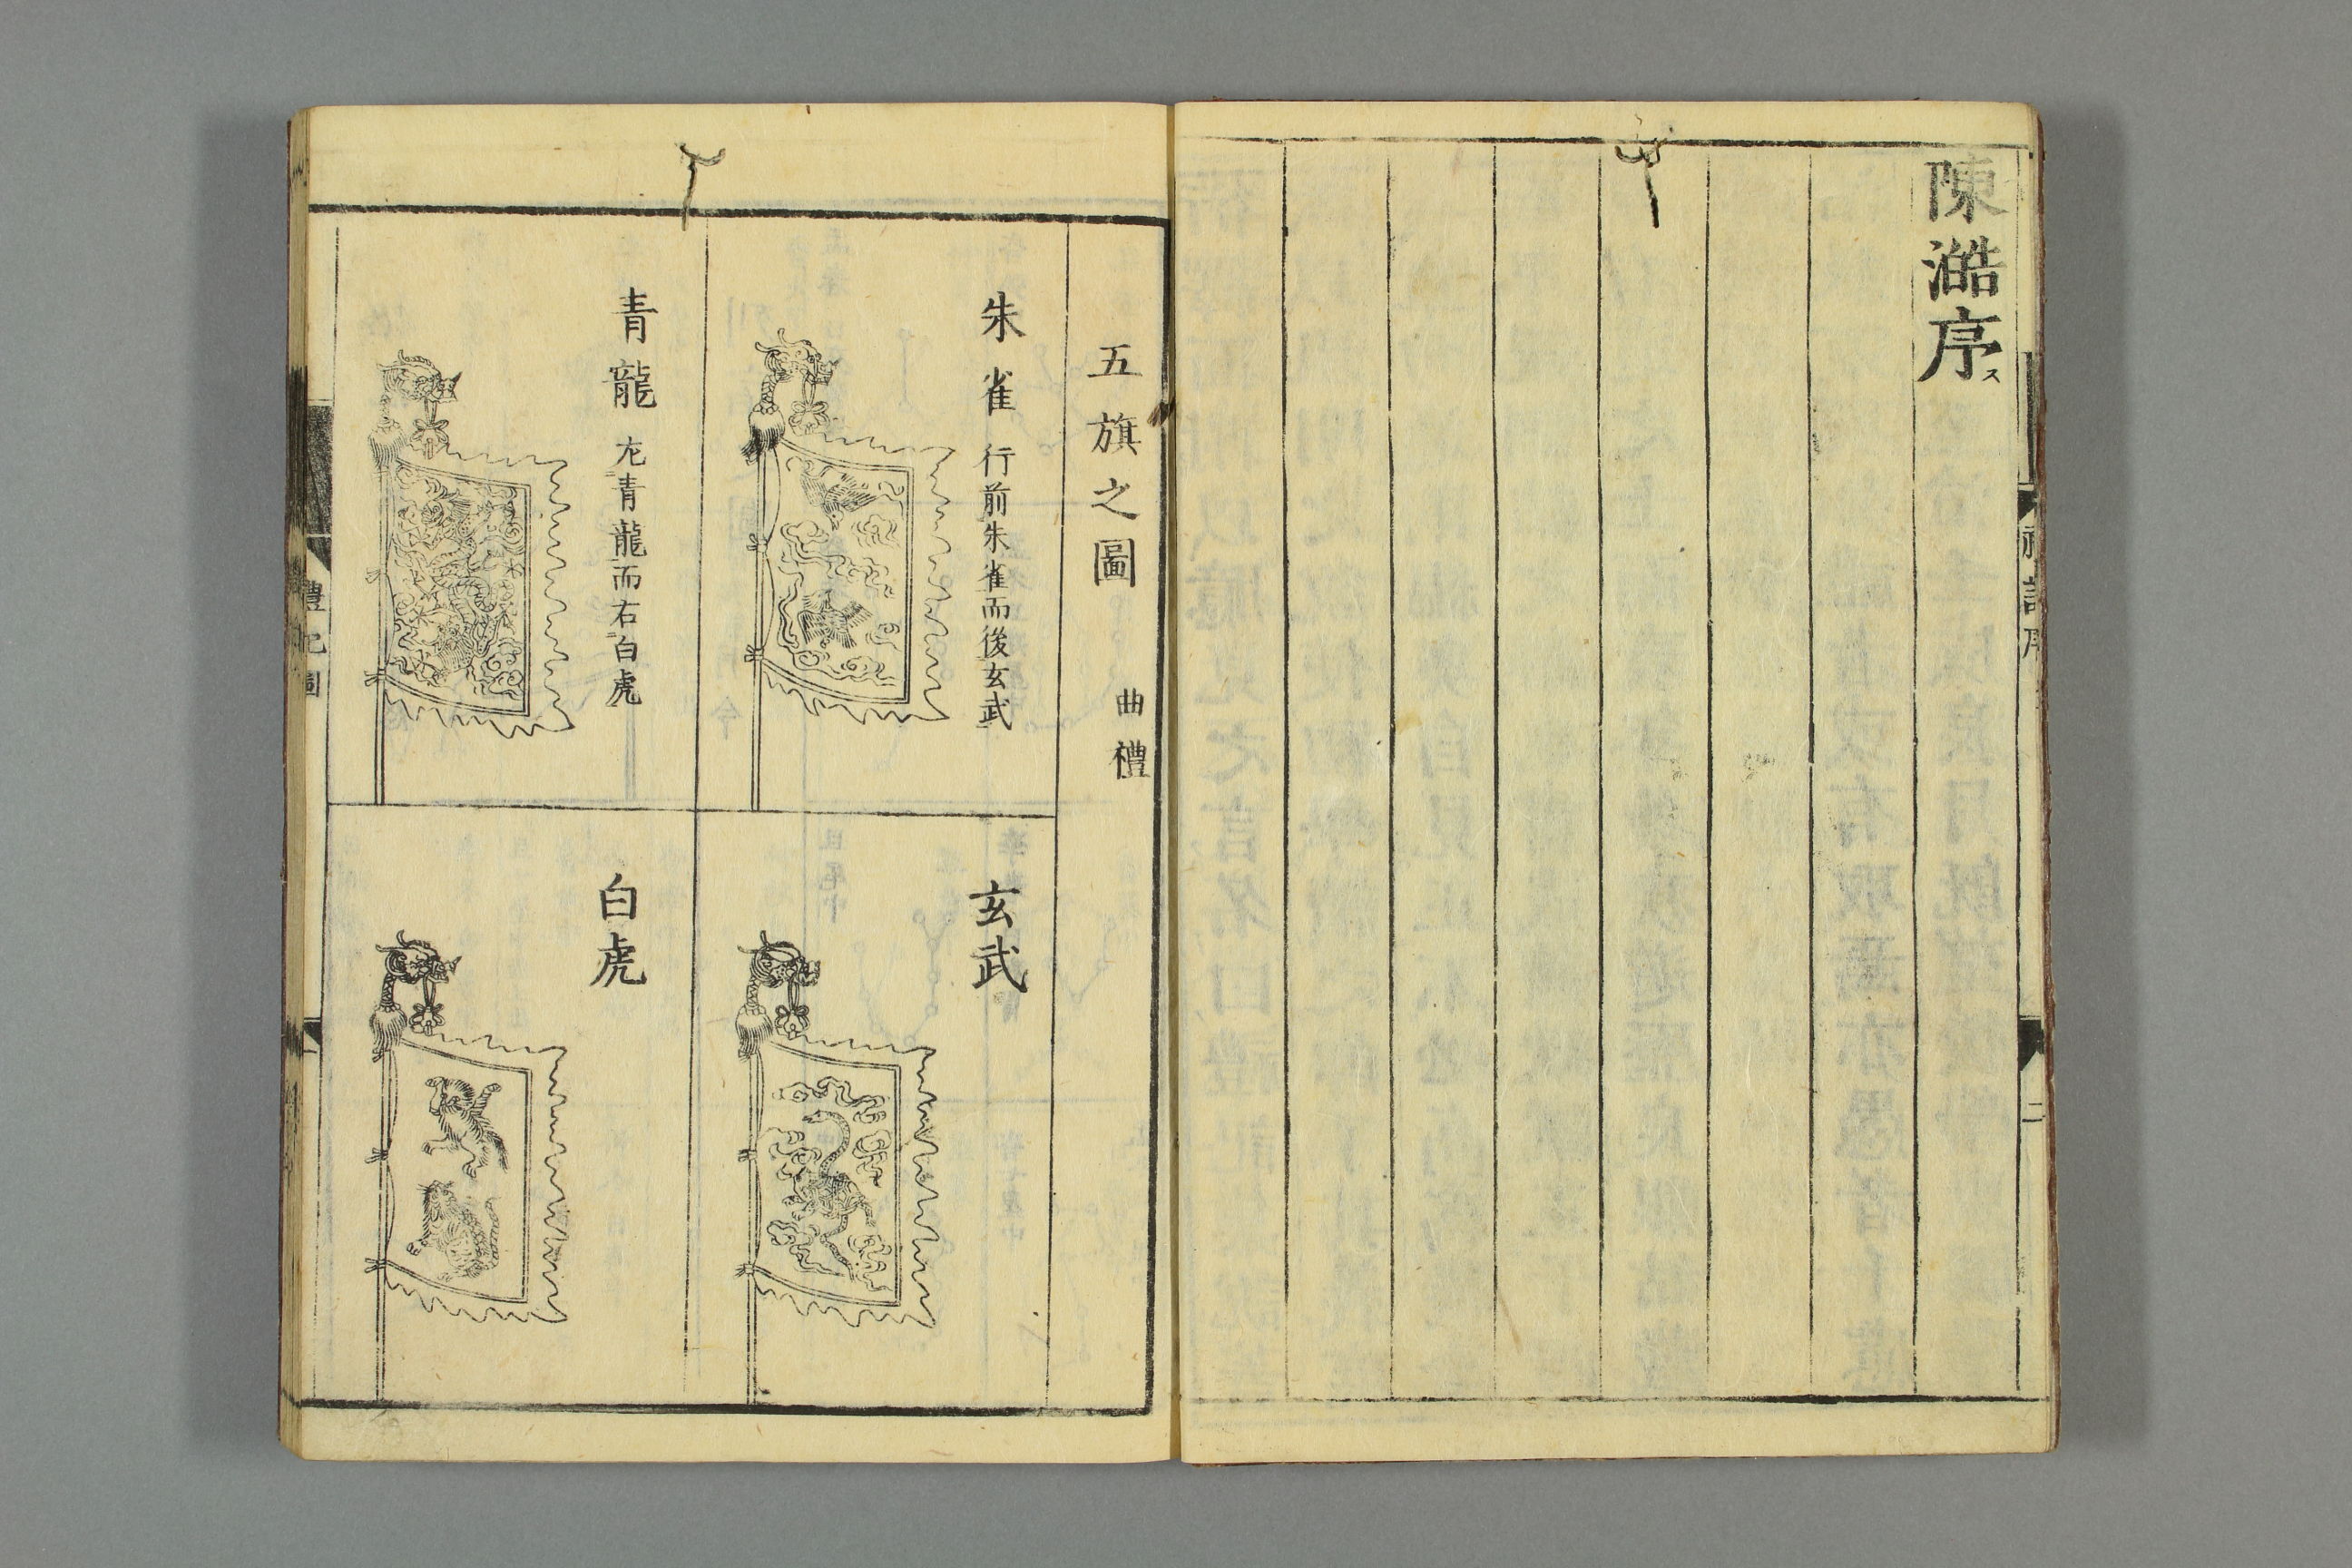 陳澔序ス
五旗之圖 曲禮
朱雀 行前朱雀而後玄武
玄武
青龍 左青龍而右白虎
白虎
禮記圖